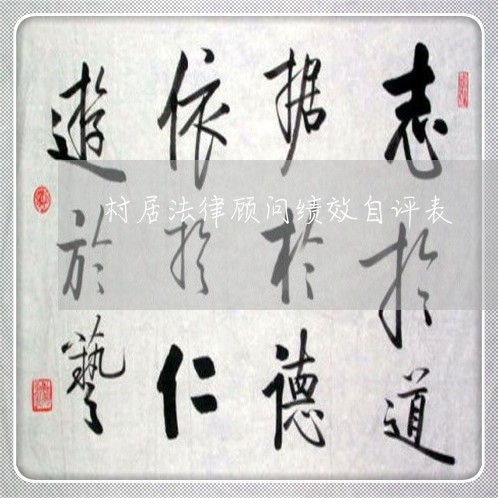 志於道
据於德
依於仁
遊於藝
村居法律顾问绩效自评表